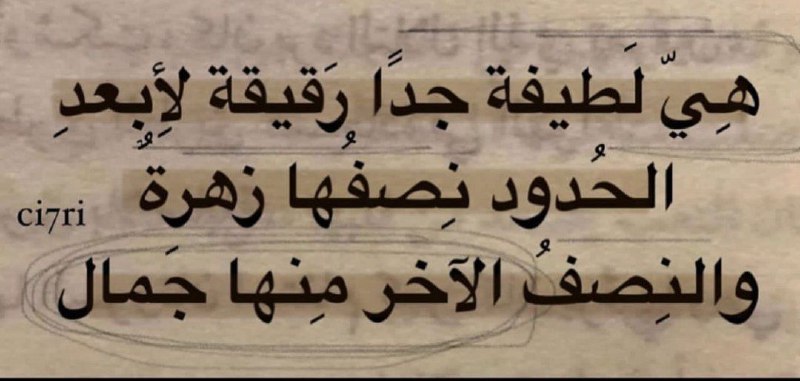 هِيّ لَطيفة جدًا رَقيقة لأِبعدِ
الحُدود نِصفُها زهرةٌ
ci7ri
والنِصفُ الآخر مِنها جَمال